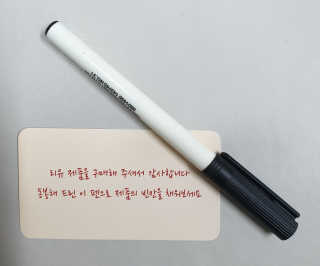 리유 제품을 구매해 주셔서 감사합니다
동봉해 드린 이 펜으로 제품의 빈칸을 채워보세요